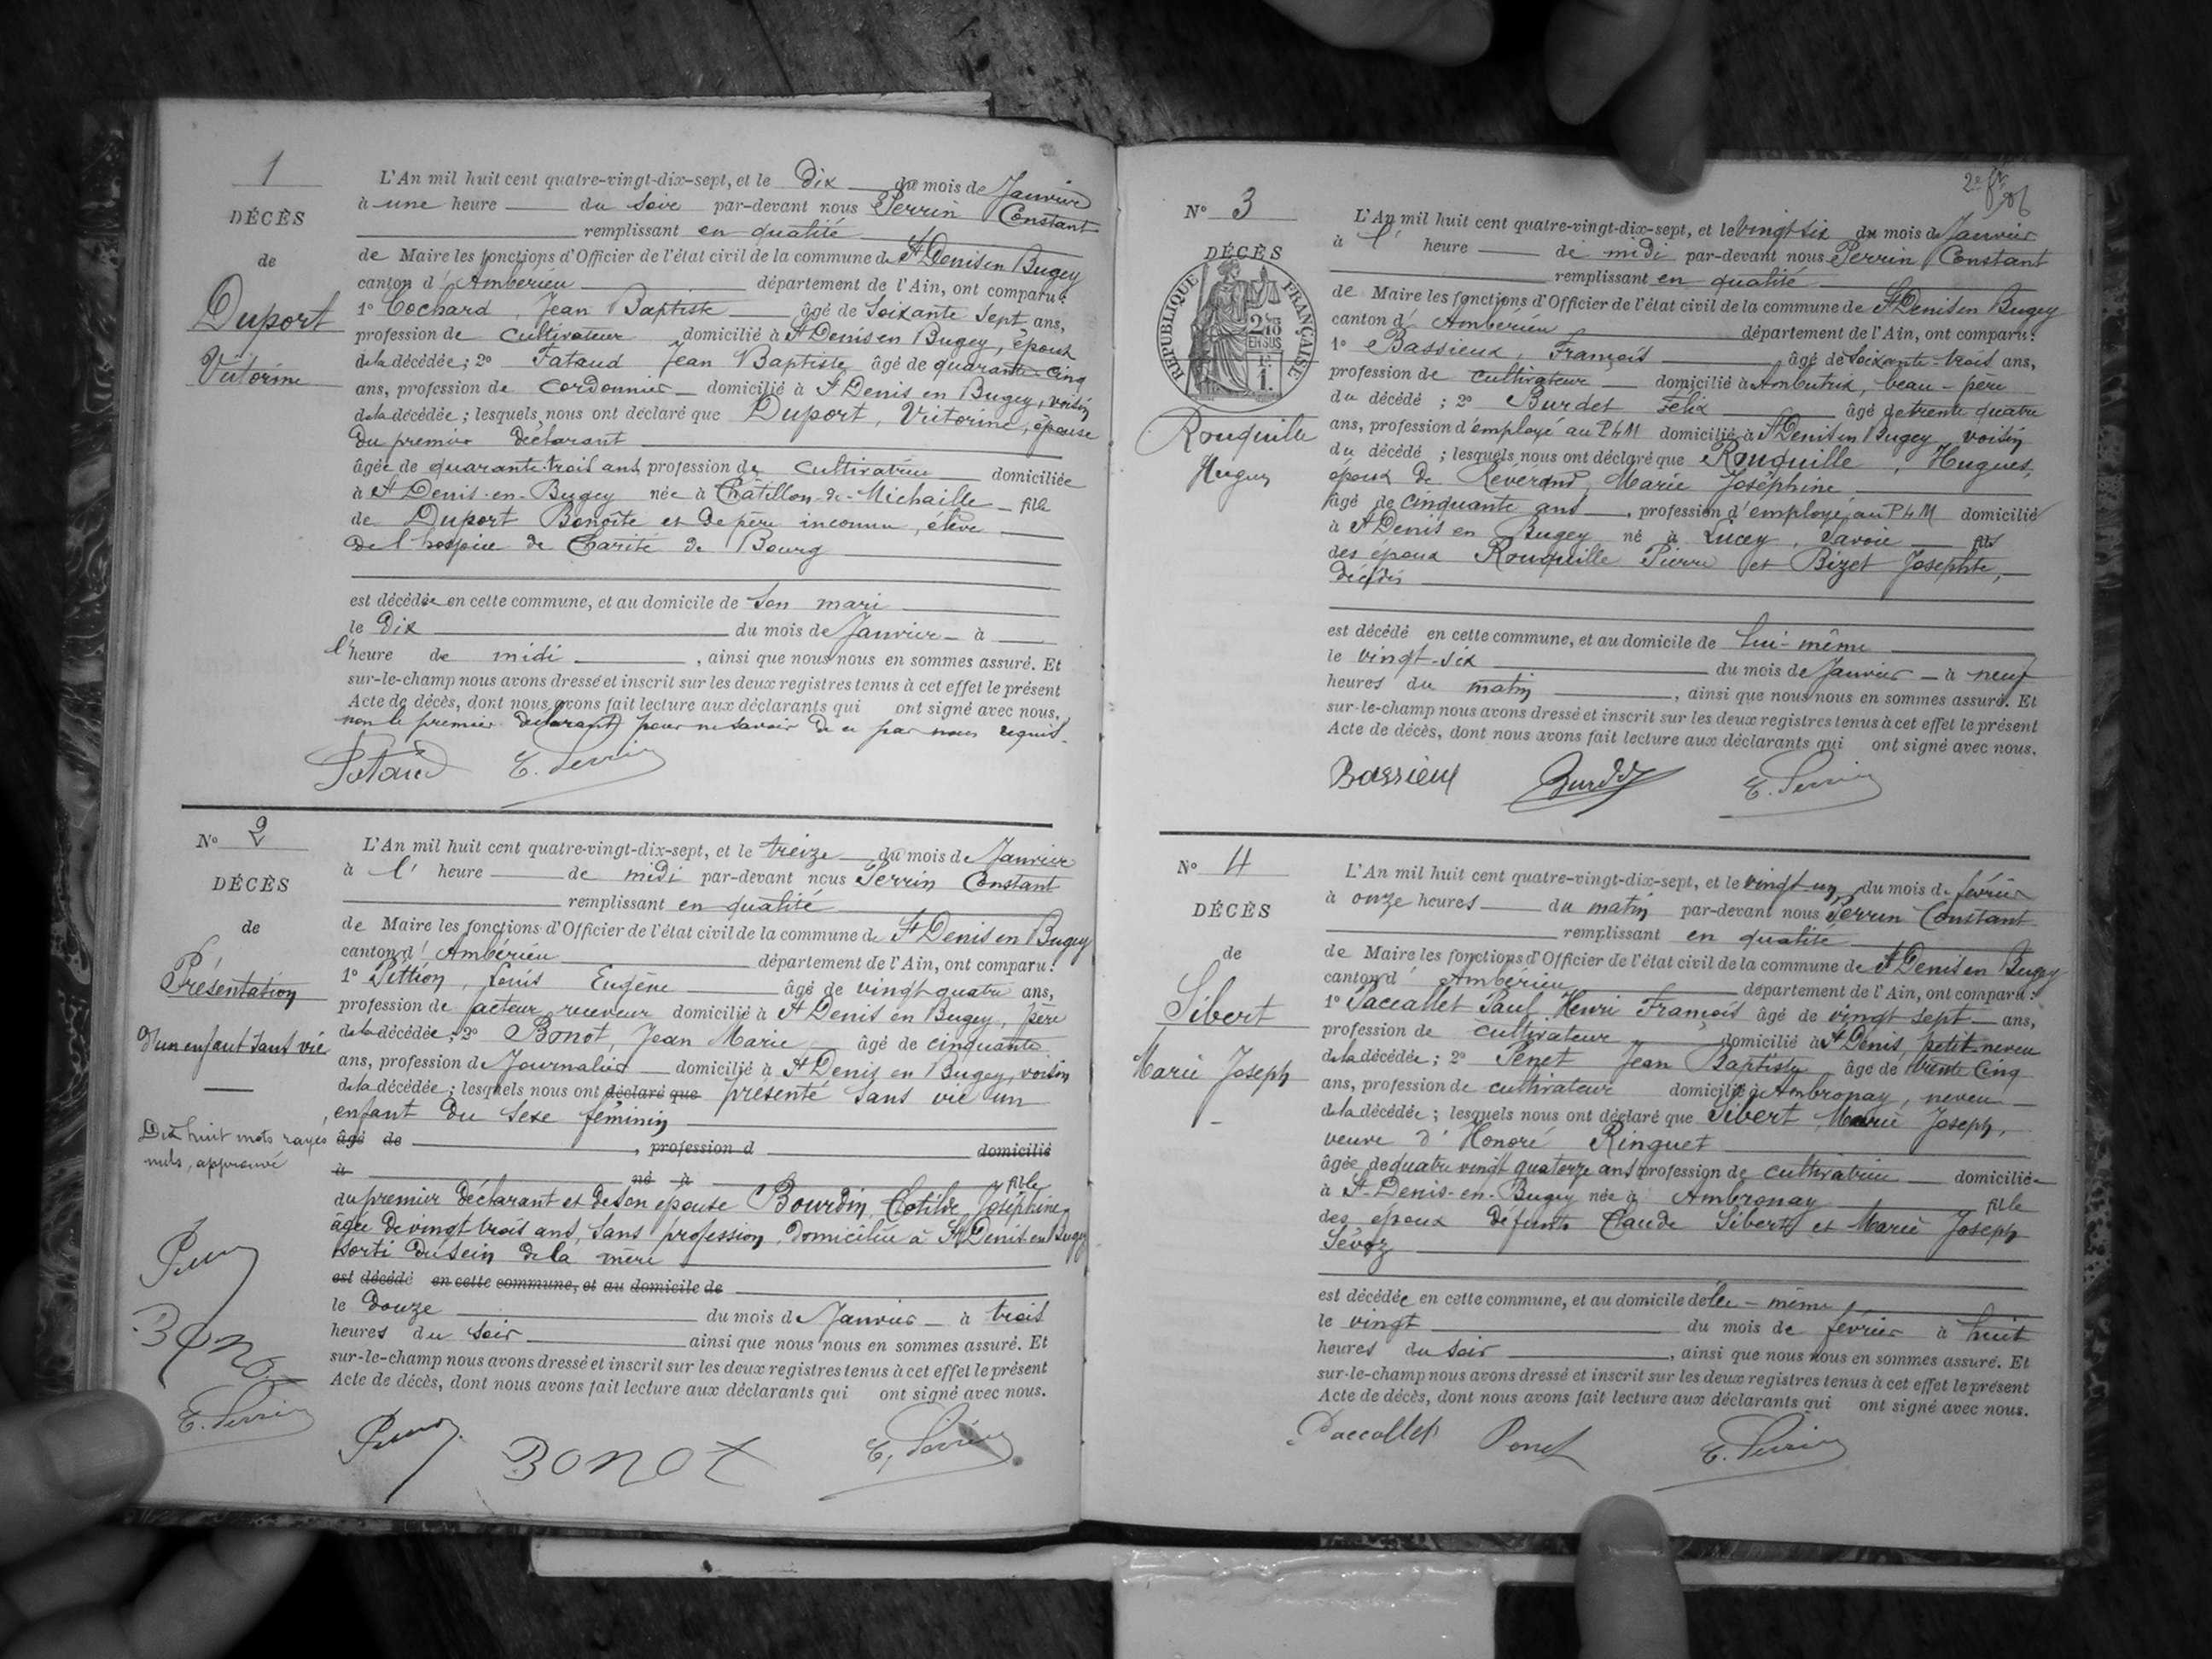 1
DÉCÈS
de
Duport
Vitorine
L'An mil huit cent quatre-vingt-dix-sept, et le Dix du mois de Janvier
à une heure du soir par-devant nous Perrin Constant
remplissant en qualité
de Maire les fonctions d'Officier de l'état civil de la commune de St Denis en Bugey
canton d' Ambérieu département de l'Ain, ont comparu :
1° Cochard, Jean Baptiste âgé de soixante sept ans,
profession de cultivateur domicilié à St Denis en Bugey, époux
de la décédée ; 2° Fataud Jean Baptiste âgé de quarante cinq
ans, profession de cordonnier domicilié à St Denis en Bugey, voisin
de la décédée ; lesquels nous ont déclaré que Duport, Vitorine, épouse
du premier déclarant
âgée de quarante-trois ans, profession de cultivatrice domiciliée
à St Denis-en-Bugey née à Châtillon-de-Michaille fille
de Duport Benoîte et de père inconnu, élève
de l'hospice de Charité de Bourg
est décédée en cette commune, et au domicile de son mari
le Dix du mois de Janvier à
l'heure de midi, ainsi que nous nous en sommes assuré. Et
sur-le-champ nous avons dressé et inscrit sur les deux registres tenus à cet effet le présent
Acte de décès, dont nous avons fait lecture aux déclarants qui ont signé avec nous,
non le premier déclarant pour ne savoir de ce par nous requis.
Fataud E. Perrin
N° 2
DÉCÈS
de
Présentation
d'un enfant sans vie
Dix huit mots rayés
nuls, approuvé
Bonot
E. Perrin
L'An mil huit cent quatre-vingt-dix-sept, et le treize du mois de Janvier
à l' heure de midi par-devant nous Perrin Constant
remplissant en qualité
de Maire les fonctions d'Officier de l'état civil de la commune de St Denis en Bugey
canton d' Ambérieu département de l'Ain, ont comparu :
1° Pittion, Louis Eugène âgé de vingt quatre ans,
profession de facteur receveur domicilié à St Denis en Bugey, père
de la décédée ; 2° Bonot, Jean Marie âgé de cinquante
ans, profession de Journalier domicilié à St Denis en Bugey, voisin
de la décédée ; lesquels nous ont déclaré que présenté sans vie un
enfant du sexe féminin
âgé de , profession d domicilié
à né à fille
du premier déclarant et de son épouse Bourdin, Clotilde Joséphine
âgée de vingt trois ans, sans profession, domiciliée à St Denis en Bugey
sorti du sein de la mère
est décédé en cette commune, et au domicile de
le douze du mois de Janvier à trois
heures du soir ainsi que nous nous en sommes assuré. Et
sur-le-champ nous avons dressé et inscrit sur les deux registres tenus à cet effet le présent
Acte de décès, dont nous avons fait lecture aux déclarants qui ont signé avec nous.
BONOT E. Perrin
N° 3
DÉCÈS
RÉPUBLIQUE FRANÇAISE
2/10 EN SUS
Rouquille
Hugues
L'An mil huit cent quatre-vingt-dix-sept, et le vingt six du mois de Janvier
à l' heure de midi par-devant nous Perrin Constant
remplissant en qualité
de Maire les fonctions d'Officier de l'état civil de la commune de St Denis en Bugey
canton d' Ambérieu département de l'Ain, ont comparu :
1° Bassieux, François âgé de soixante-trois ans,
profession de cultivateur domicilié à Ambutrix, beau-père
du décédé ; 2° Burdet Felix âgé de trente quatre
ans, profession d'employé au PLM domicilié à St Denis en Bugey voisin
du décédé ; lesquels nous ont déclaré que Rouquille, Hugues,
époux de Révérend, Marie Joséphine
âgé de cinquante ans, profession d'employé au PLM domicilié
à St Denis en Bugey né à Lucey, Savoie fils
des époux Rouquille Pierre et Bizet Josephte,
décédés
est décédé en cette commune, et au domicile de lui-même
le vingt-six du mois de Janvier à neuf
heures du matin, ainsi que nous nous en sommes assuré. Et
sur-le-champ nous avons dressé et inscrit sur les deux registres tenus à cet effet le présent
Acte de décès, dont nous avons fait lecture aux déclarants qui ont signé avec nous.
Bassieux Burdet E. Perrin
N° 4
DÉCÈS
de
Sibert
Marie Joseph
L'An mil huit cent quatre-vingt-dix-sept, et le vingt un du mois de février
à onze heures du matin par-devant nous Perrin Constant
remplissant en qualité
de Maire les fonctions d'Officier de l'état civil de la commune de St Denis en Bugey
canton d' Ambérieu département de l'Ain, ont comparu :
1° Paccallet Paul Henri François âgé de vingt sept ans,
profession de cultivateur domicilié à St Denis, petit-neveu
de la décédée ; 2° Penet Jean Baptiste âgé de trente cinq
ans, profession de cultivateur domicilié à Ambronay, neveu
de la décédée ; lesquels nous ont déclaré que Sibert Marie Joseph,
veuve d' Honoré Ringuet
âgée de quatre vingt quatorze ans profession de cultivatrice domiciliée
à St-Denis-en-Bugey née à Ambronay fille
des époux défunts Claude Sibert et Marie Joseph
Sévoz
est décédée en cette commune, et au domicile d'elle-même
le vingt du mois de février à huit
heures du soir, ainsi que nous nous en sommes assuré. Et
sur-le-champ nous avons dressé et inscrit sur les deux registres tenus à cet effet le présent
Acte de décès, dont nous avons fait lecture aux déclarants qui ont signé avec nous.
Paccallet Penet E. Perrin